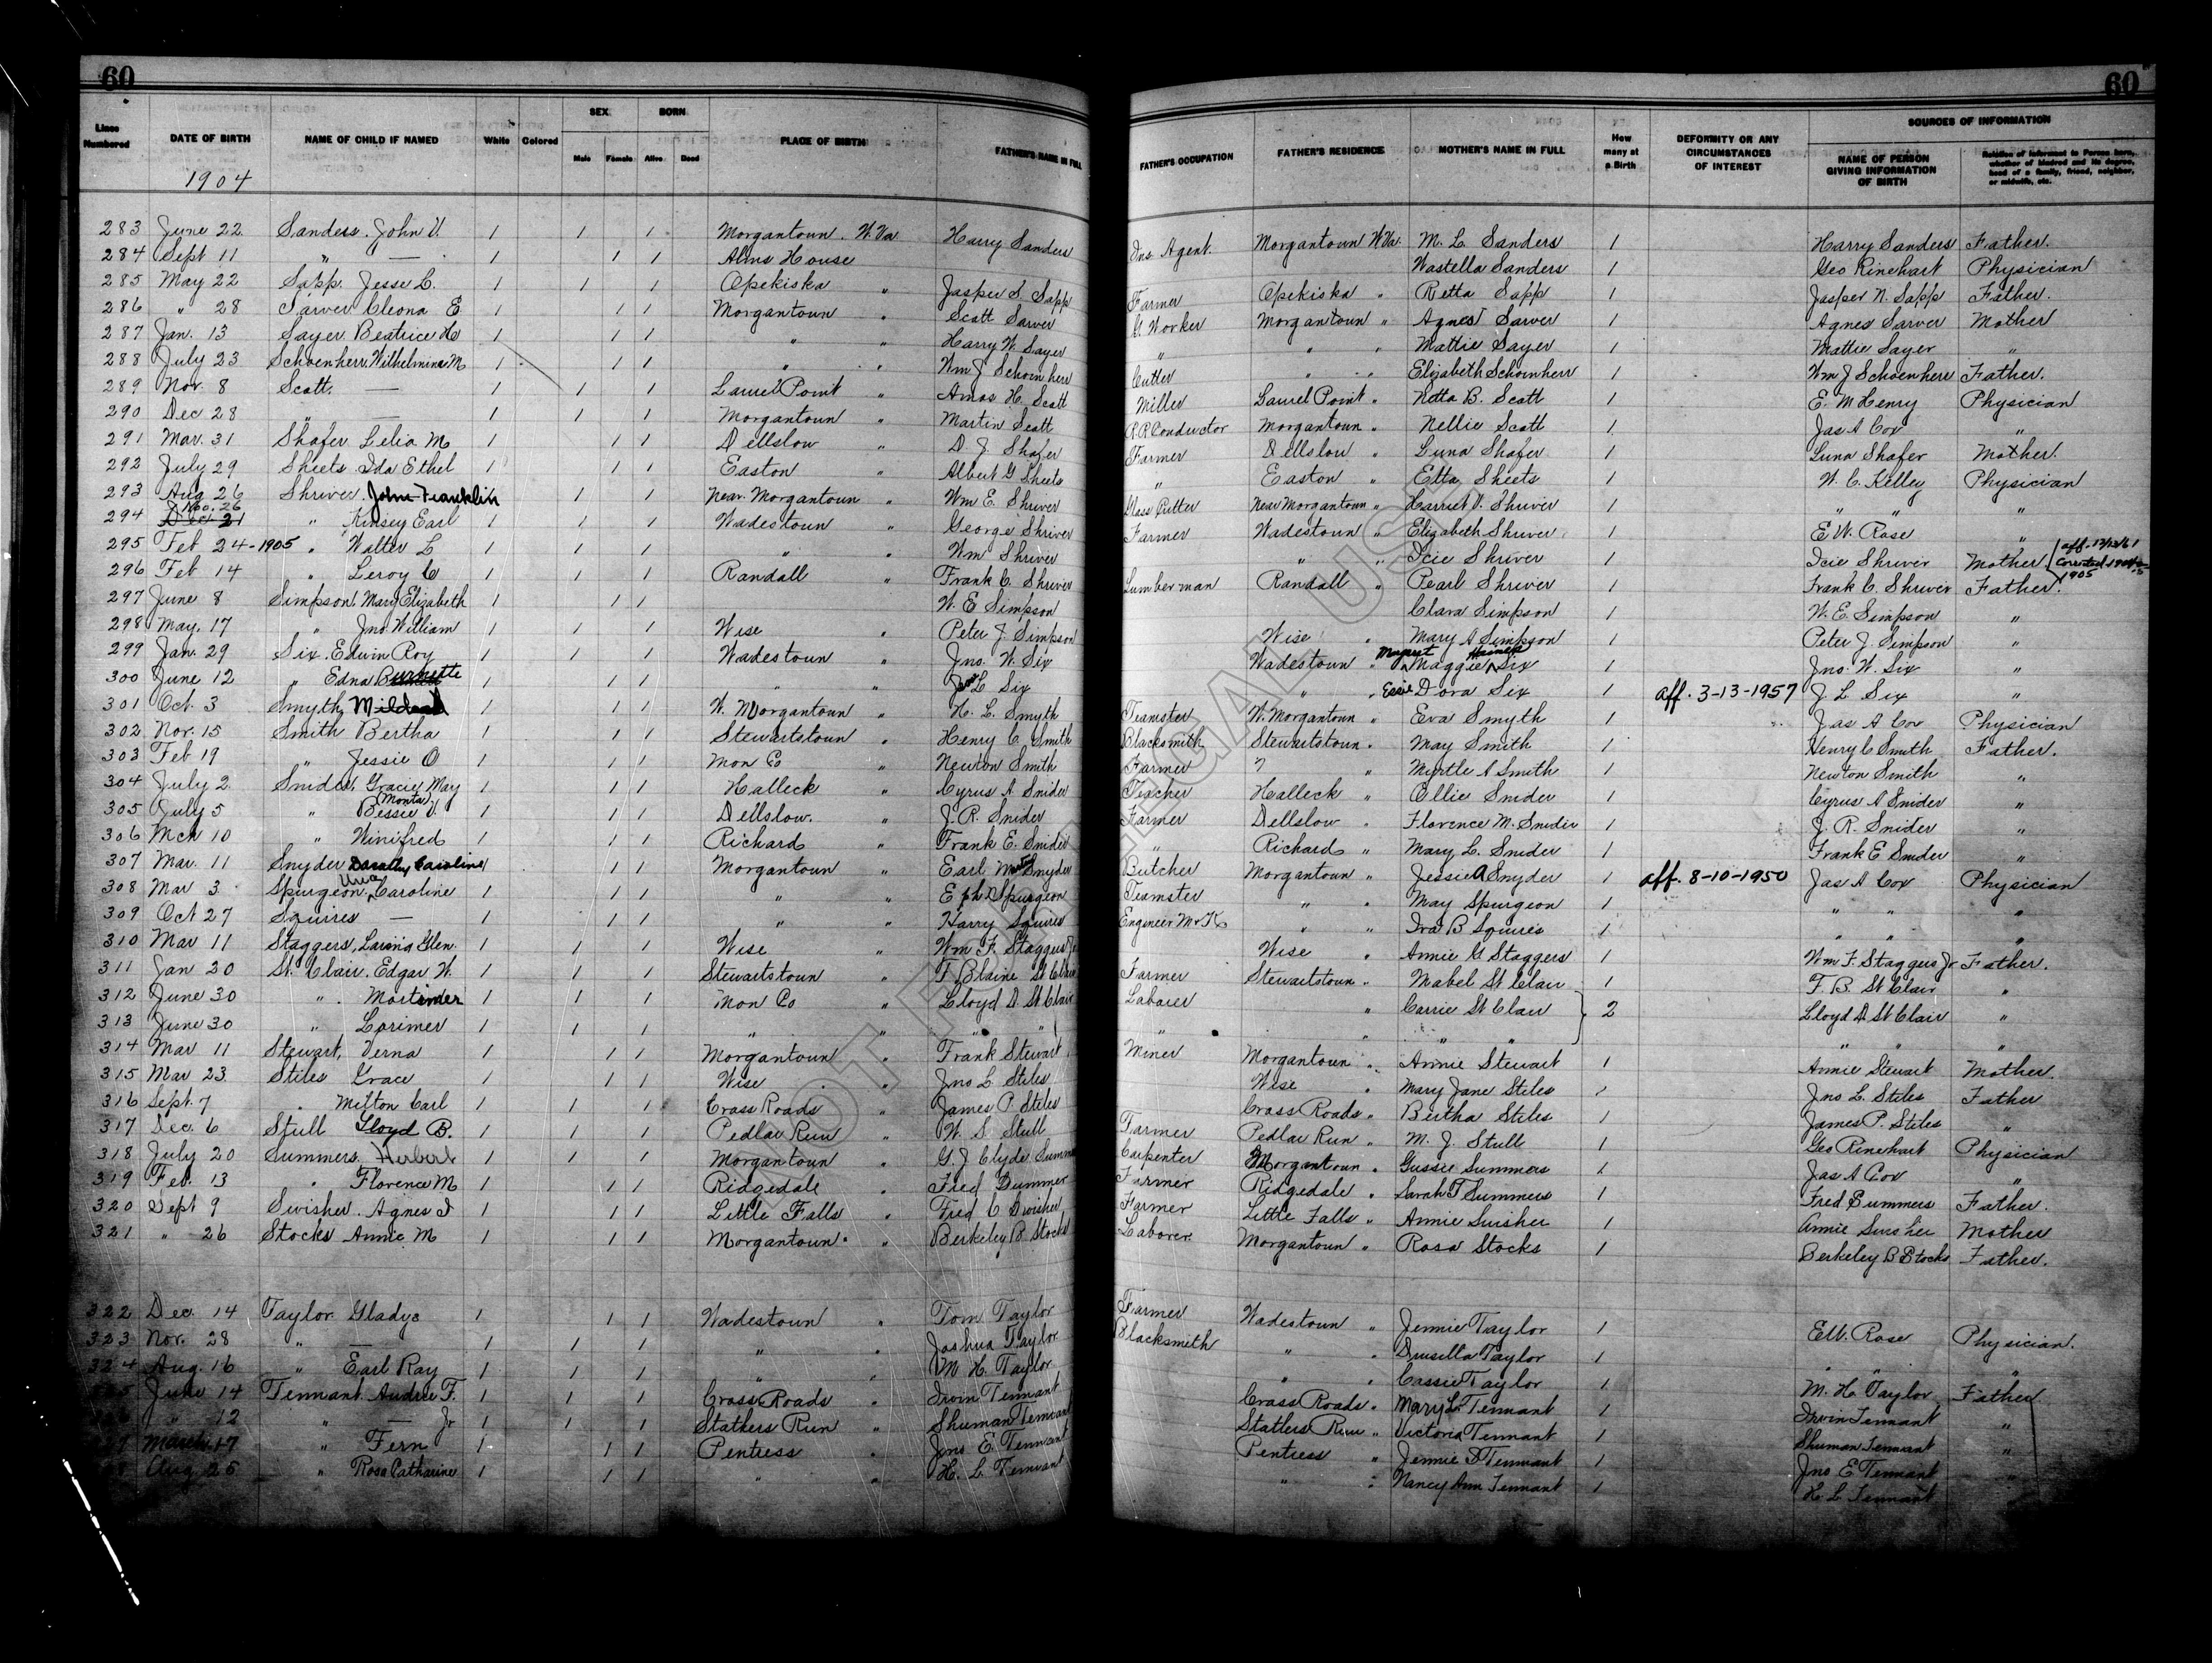 60 60
Lines Numbered DATE OF BIRTH NAME OF CHILD IF NAMED White Colored SEX Male Female BORN Alive Dead PLACE OF BIRTH FATHER'S NAME IN FULL FATHER'S OCCUPATION FATHER'S RESIDENCE MOTHER'S NAME IN FULL How many at a Birth DEFORMITY OR ANY CIRCUMSTANCES OF INTEREST SOURCES OF INFORMATION NAME OF PERSON GIVING INFORMATION OF BIRTH Relation of Informant to Person born, whether of kindred and its degree, head of a family, friend, neighbor, or midwife, etc.
1904
283 June 22 Sanders. John V 1 1 1 Morgantown. W.Va Harry Sanders Ins Agent. Morgantown W.Va. M. L. Sanders 1 Harry Sanders Father.
284 Sept 11 " — 1 1 1 Alms House Wastella Sanders 1 Geo Rinehart Physician
285 May 22 Sapp. Jesse L. 1 1 1 Opekiska " Jasper S. Sapp Farmer Opekiska " Retta Sapp 1 Jasper N. Sapp Father.
286 " 28 Sarver Cleona E 1 1 1 Morgantown " Scott Sarver G. Worker Morgantown " Agnes Sarver 1 Agnes Sarver Mother
287 Jan. 13 Sayer Beatrice H 1 1 1 " " Harry W. Sayer " " " Mattie Sayer 1 Mattie Sayer "
288 July 23 Schoenherr Wilhelmina M 1 1 1 " " Wm J Schoenherr Cutter " " Elizabeth Schoenherr 1 Wm J Schoenherr Father.
289 Nov. 8 Scott. — 1 1 1 Laurel Point " Amos H. Scott Miller Laurel Point " Netta B. Scott 1 E. M Henry Physician
290 Dec 28 " — 1 1 1 Morgantown " Martin Scott R.R Conductor Morgantown " Nellie Scott 1 Jas A Cox "
291 Mar. 31 Shafer Lelia M 1 1 1 Dellslow " D. J. Shafer Farmer Dellslow " Luna Shafer 1 Luna Shafer Mother.
292 July 29 Sheets Ida Ethel 1 1 1 Easton " Albert G Sheets " Easton " Etta Sheets 1 W. C. Kelley Physician
293 Aug 26 Shriver. John Franklin 1 1 near Morgantown " Wm E. Shriver Glass Cutter near Morgantown " Harriet V. Shriver 1 " " "
Nov. 26
294 Dec 21 " Kinsey Earl 1 1 1 Wadestown " George Shriver Farmer Wadestown " Elizabeth Shriver 1 E W. Rose "
295 Feb 24-1905 " Walter L 1 1 1 " " Wm Shriver " " Icie Shriver 1 Icie Shriver Mother aff. 12/13/61 Corrected 1904 to 1905
296 Feb 14 " Leroy C 1 1 1 Randall " Frank C. Shriver Lumberman Randall " Pearl Shriver 1 Frank C. Shriver Father.
297 June 8 Simpson Mary Elizabeth 1 1 1 W. E Simpson Clara Simpson 1 W. E. Simpson "
298 May. 17 " Jno William 1 1 1 Wise " Peter J. Simpson Wise " Mary A Simpson 1 Peter J. Simpson "
299 Jan. 29 Six. Edwin Roy 1 1 1 Wadestown " Jno. W. Six Wadestown " Maggie Six 1 Jno. W. Six "
300 June 12 " Edna 1 1 1 " " L Six " " Essie Dora Six 1 aff. 3-13-1957 J. L Six "
301 Oct. 3 Smyth Mildred 1 1 1 W. Morgantown " H. L. Smyth Teamster W. Morgantown " Eva Smyth 1 Jas A Cox Physician
302 Nov. 15 Smith Bertha 1 1 1 Stewartstown " Henry C. Smith Blacksmith Stewartstown " May Smith 1 Henry C Smith Father.
303 Feb 19 " Jessie O 1 1 1 Mon Co " Newton Smith Farmer ? " Myrtle A Smith 1 Newton Smith "
304 July 2 Snider Gracie May 1 1 1 Halleck " Cyrus A Snider Teacher Halleck " Ollie Snider 1 Cyrus A Snider "
305 July 5 " Bessie V. (Monta) 1 1 1 Dellslow. " J. R. Snider Farmer Dellslow " Florence M. Snider 1 J. R. Snider "
306 Mch 10 " Winifred 1 1 1 Richard " Frank E. Snider " Richard " Mary L. Snider 1 Frank E Snider "
307 Mar. 11 Snyder Dorothy Caroline 1 1 Morgantown " Earl Snyder Butcher Morgantown " Jessie A Snyder 1 aff. 8-10-1950 Jas A Cox Physician
308 Mar 3 Spurgeon, Caroline 1 1 1 " " Eph D Spurgeon Teamster " " May Spurgeon 1 " " "
309 Oct 27 Squires — 1 1 1 " " Harry Squires Engineer " " Ira B Squires 1 " " "
310 Mar 11 Staggers, Glen 1 1 1 Wise " Wm F. Staggers Jr Wise " Annie G Staggers 1 Wm F. Staggers Jr Father.
311 Jan 20 St. Clair. Edgar W. 1 1 1 Stewartstown " F Blaine St Clair Farmer Stewartstown " Mabel St Clair 1 F. B. St Clair "
312 June 30 " Mortimer 1 1 1 Mon Co " Lloyd D. St Clair Laborer " Carrie St Clair } 2 Lloyd D St Clair "
313 June 30 " Lorimer 1 1 1 " " " " " " " " " " "
314 Mar 11 Stewart, Verna 1 1 1 Morgantown " Frank Stewart Miner Morgantown " Annie Stewart 1 Annie Stewart Mother.
315 Mar 23 Stiles Grace 1 1 1 Wise " Jno L. Stiles Wise " Mary Jane Stiles 1 Jno L. Stiles Father
316 Sept. 7 " Milton Carl 1 1 1 Cross Roads " James P. Stiles Cross Roads " Bertha Stiles 1 James P. Stiles "
317 Dec. 6 Stull Lloyd B. 1 1 1 Pedlar Run " W. S. Stull Farmer Pedlar Run " M. J. Stull 1 Geo Rinehart Physician
318 July 20 Summers. Herbert 1 1 1 Morgantown " G. J Clyde Summ Carpenter Morgantown " Gussie Summers 1 Jas A Cox "
319 Feb. 13 " Florence M 1 1 1 Ridgedale " Fred Summer Farmer Ridgedale " Sarah T Summers 1 Fred Summers Father.
320 Sept 9 Swisher. Agnes I 1 1 1 Little Falls " Fred C Swisher Farmer Little Falls " Annie Swisher 1 Annie Swisher Mother
321 " 26 Stocks Annie M 1 1 1 Morgantown " Berkeley B. Stocks Laborer Morgantown " Rosa Stocks 1 Berkeley B Stocks Father.
322 Dec. 14 Taylor Gladys 1 1 1 Wadestown " Tom Taylor Farmer Wadestown " Jennie Taylor 1 E W. Rose Physician.
323 Nov. 28 " — 1 1 1 " " Joshua Taylor Blacksmith " " Drusilla Taylor 1 " " "
324 Aug. 16 " Earl Ray 1 1 1 " " M H. Taylor " " Cassie Taylor 1 M. H. Taylor Father
325 June 14 Tennant. Audree F. 1 1 1 Cross Roads " Irvin Tennant Cross Roads " Mary L. Tennant 1 Irvin Tennant "
" 12 " — Jr 1 1 1 Statlers Run " Shuman Tennant Statlers Run " Victoria Tennant 1 Shuman Tennant "
March 17 " Fern 1 1 1 Pentress " Jno E. Tennant Pentress " Jennie S Tennant 1 Jno E Tennant "
Aug 25 " Rosa Catharine 1 1 1 " " H. L Tennant " " Nancy Ann Tennant 1 H. L Tennant